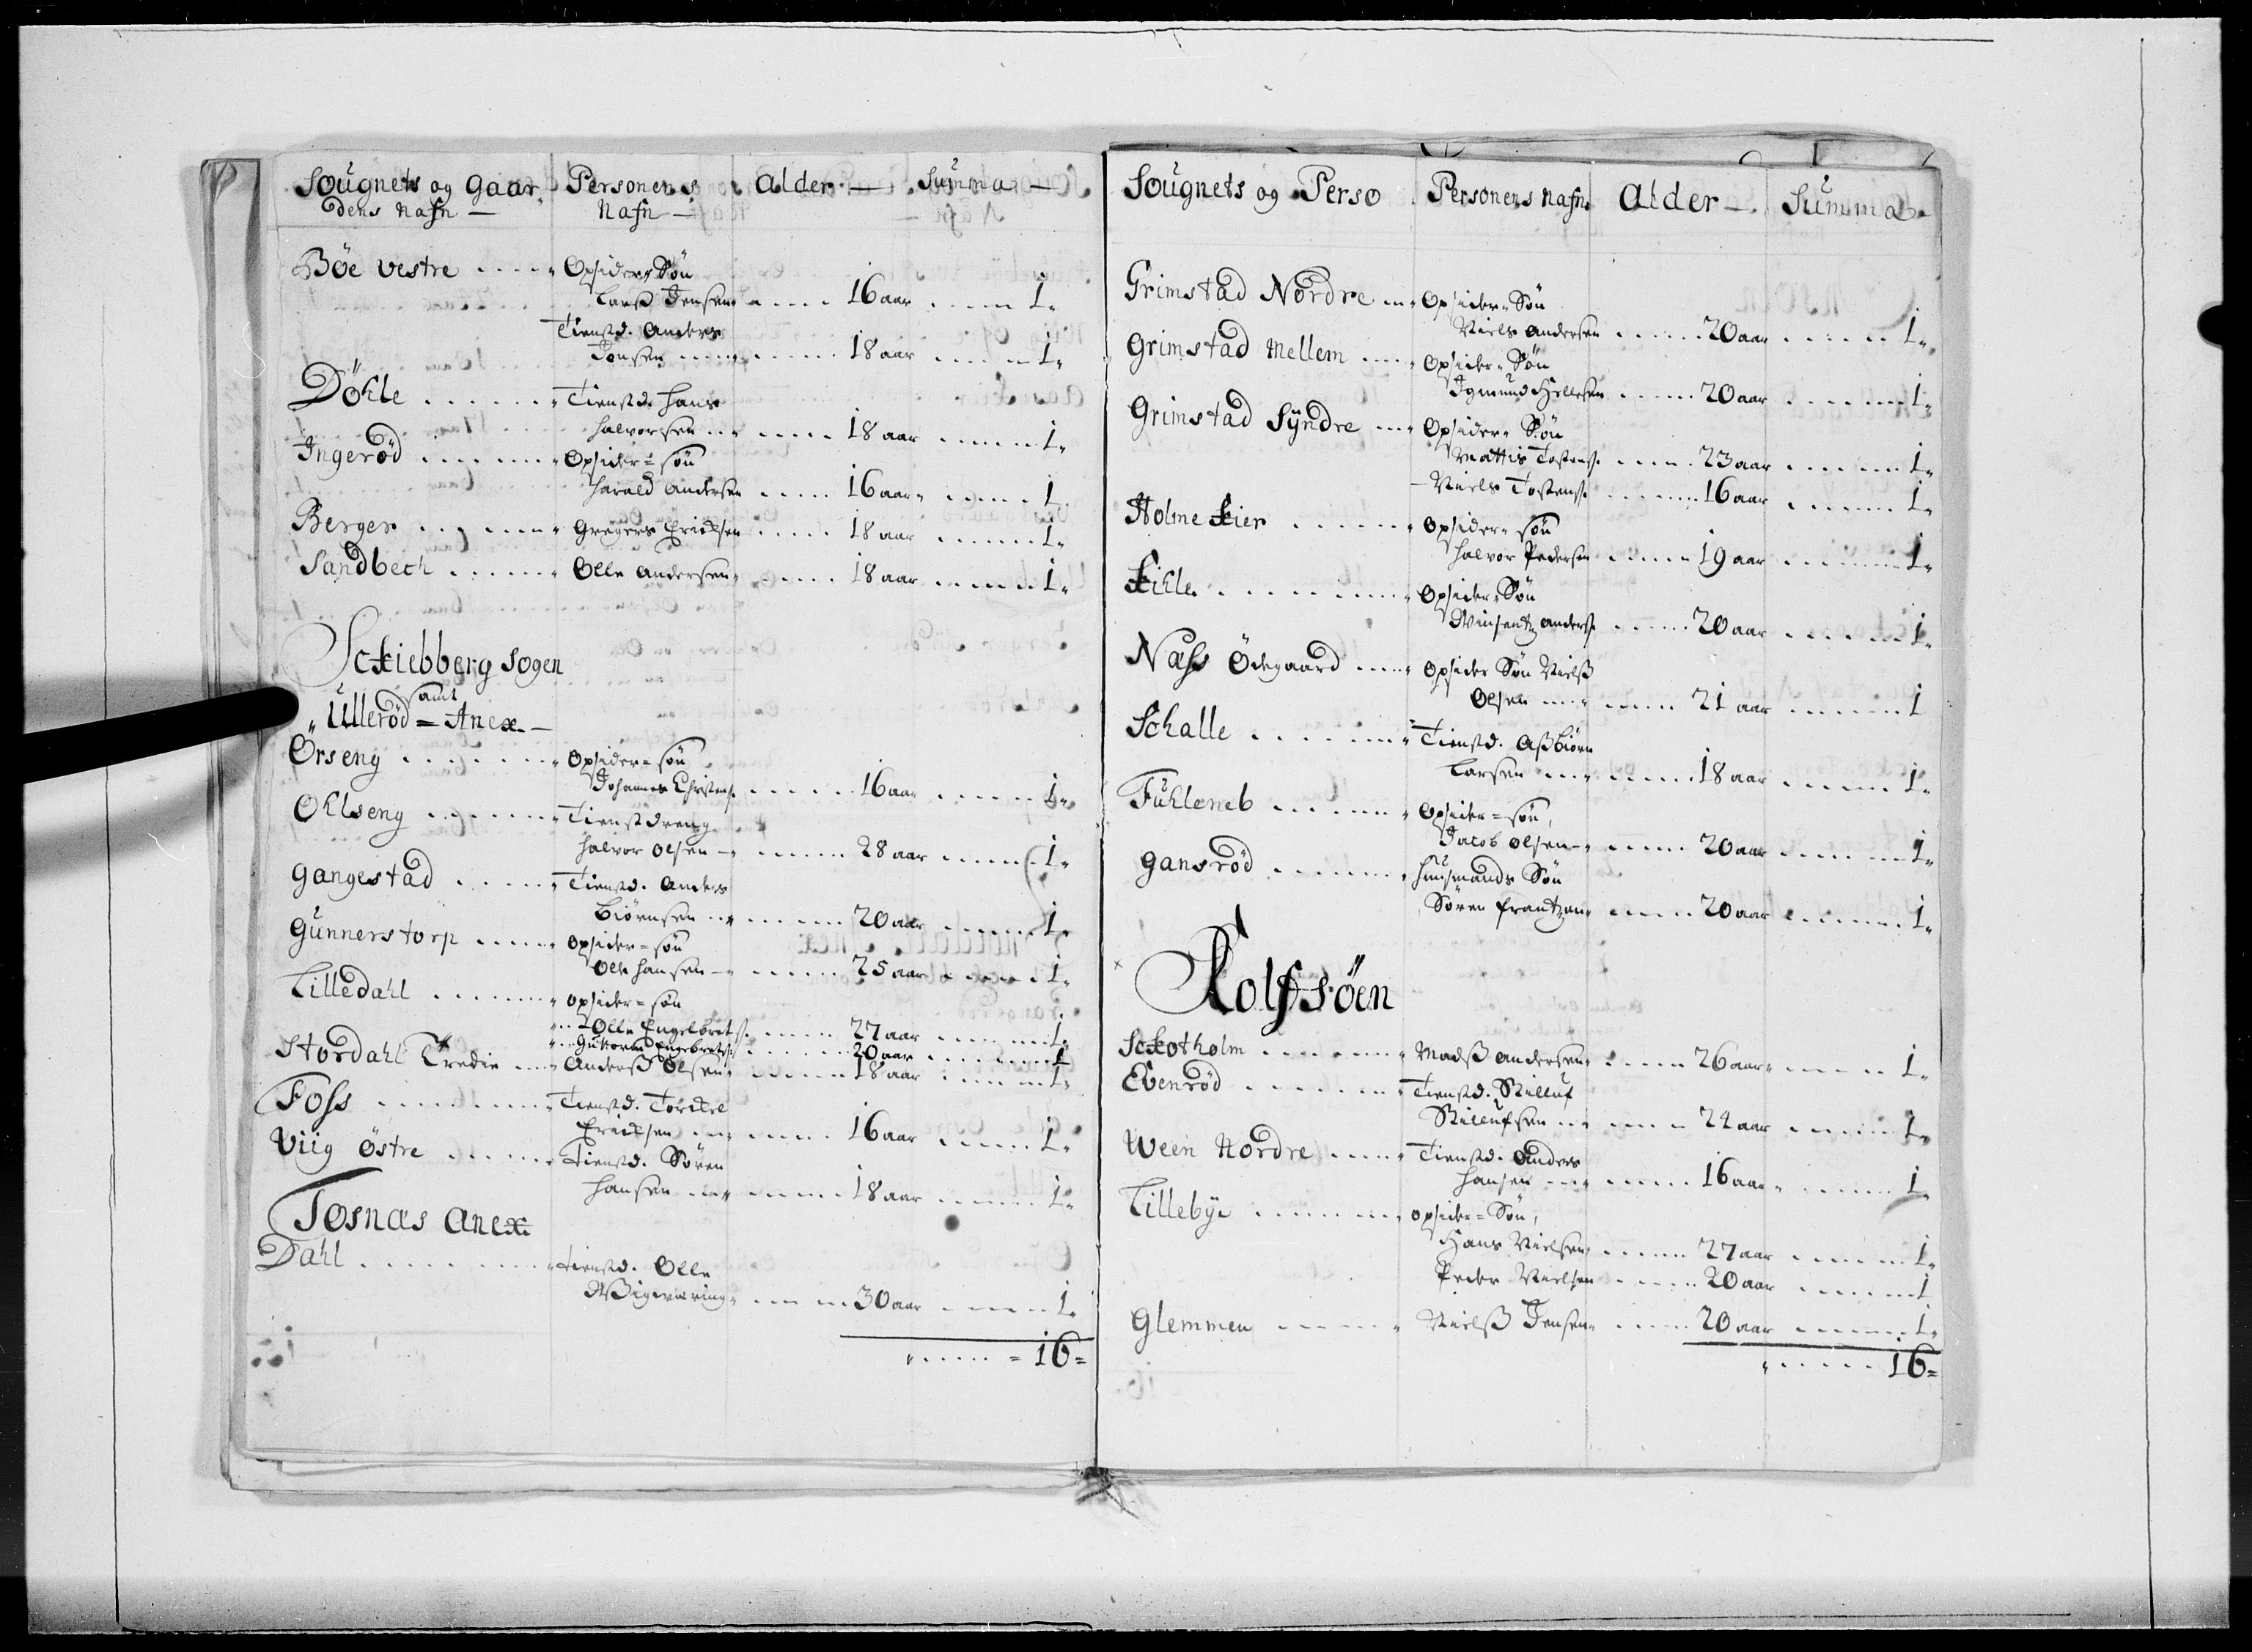 Sougnets og Gaar= Personens Alder — Summa —
dens Nafn — Nafn —
Böe vestre . . . . " Opsider Sön
Larss Jensen " . . . . 16 aar . . . . 1 "
Tienstd. Anders
Jonsen . . . . 18 aar . . . . 1 "
Döhle . . . . . . " Tienstd. Hans
Halvorsen . . . . 18 aar . . . . 1 "
Ingeröd . . . . . " Opsider = sön
Harald Andersen . . . . 16 aar " . . . . 1
Berger . . . . . " Gregers Ericksen . . . . 18 aar . . . . 1 "
Sandbech . . . . . " Olle Andersen " . . . . 18 aar . . . . 1 "
Sckiebberg Sogen
samt
" Ulleröd = Anex —
Örseng . . . . . . " Opsider = sön
Johannes Christens. . . . . 16 aar . . . . 1 "
Ohlseng . . . . . " Tienstdreng
Halvor Olsen — " . . . . 28 aar . . . . 1 "
Gangestad . . . . . " Tienstd. Anders
Biörnsen " . . . . 20 aar . . . . 1 "
Gunnerstorp . . . . " Opsider = sön
Ole Hansen — " . . . . 25 aar . . . . 1 "
Lilledahl . . . . . " opsider = sön
" Olle Engelbrets. . . . . 27 aar . . . . 1 "
" Guttorm Engebretss. . . . . 20 aar . . . . 1
Stordahl Tredie . . . " Anderss Olsen " . . . . 18 aar . . . . 1 "
Foss . . . . . . " Tienstd. Torckel
Ericksen . . . . 16 aar . . . . 1 "
Viig östre . . . . . " Tienstd. Sören
Hansen " . . . . 18 aar . . . . 1 "
Tosnæs Anex
Dahl . . . . . . " tienstd. Olle
. . . . 30 aar . . . . 1 "
" . . . . = 16 =
Sougnets og Perso Personens Nafn Alder — Summa
Grimstad Nordre . . " Opsider " Sön
Niels Andersen . . . . 20 aar . . . . 1 "
Grimstad Mellem . . . " Opsider " Sön
Hellesen . . . . 20 aar . . . . 1 "
Grimstad Syndre . . . " Opsider " Sön
Mattis Tostens. . . . . 23 aar . . . . 1 "
— Niels Tostens. . . . . 16 aar . . . . 1 "
Holme kier . . . . . " Opsider " sön
Halvor Pedersen . . . . 19 aar . . . . 1 "
Kihle . . . . . . " Opsider " Sön
Vinsentz Anders. . . . . 20 aar . . . . 1 "
Næss Ödegaard . . . " Opsider Sön Nielss
Olsen " . . . . 21 aar . . . . 1
Schalle . . . . . " Tienstd. Assbiörn
Larsen " . . . . 18 aar . . . . 1 "
Fuhleneb . . . . . " Opsider = sön,
Jacob Olsen — " . . . . 20 aar . . . . 1 "
Gansröd . . . . . " Huusmands Sön
Sören Frantzen " . . . . 20 aar . . . . 1 "
Rolfsöen
Sckotholm . . . . . " Madss Andersen " . . . . 26 aar " . . . . 1 "
Evenröd . . . . . " Tienstd. Stilluf
Stillufsen " . . . . 24 aar . . . . 1 "
Ween Nordre . . . . " Tienstd. Anders
Hansen " . . . . 16 aar " . . . . 1 "
Lillebye . . . . . , opsider = Sön,
Hans Nielsen " . . . . 27 aar . . . . 1 "
Peder Nielsen . . . . 20 aar . . . . 1
Glemmen . . . . . " Nielss Jensen " . . . . 20 aar . . . . 1 "
" . . . . . 16 =